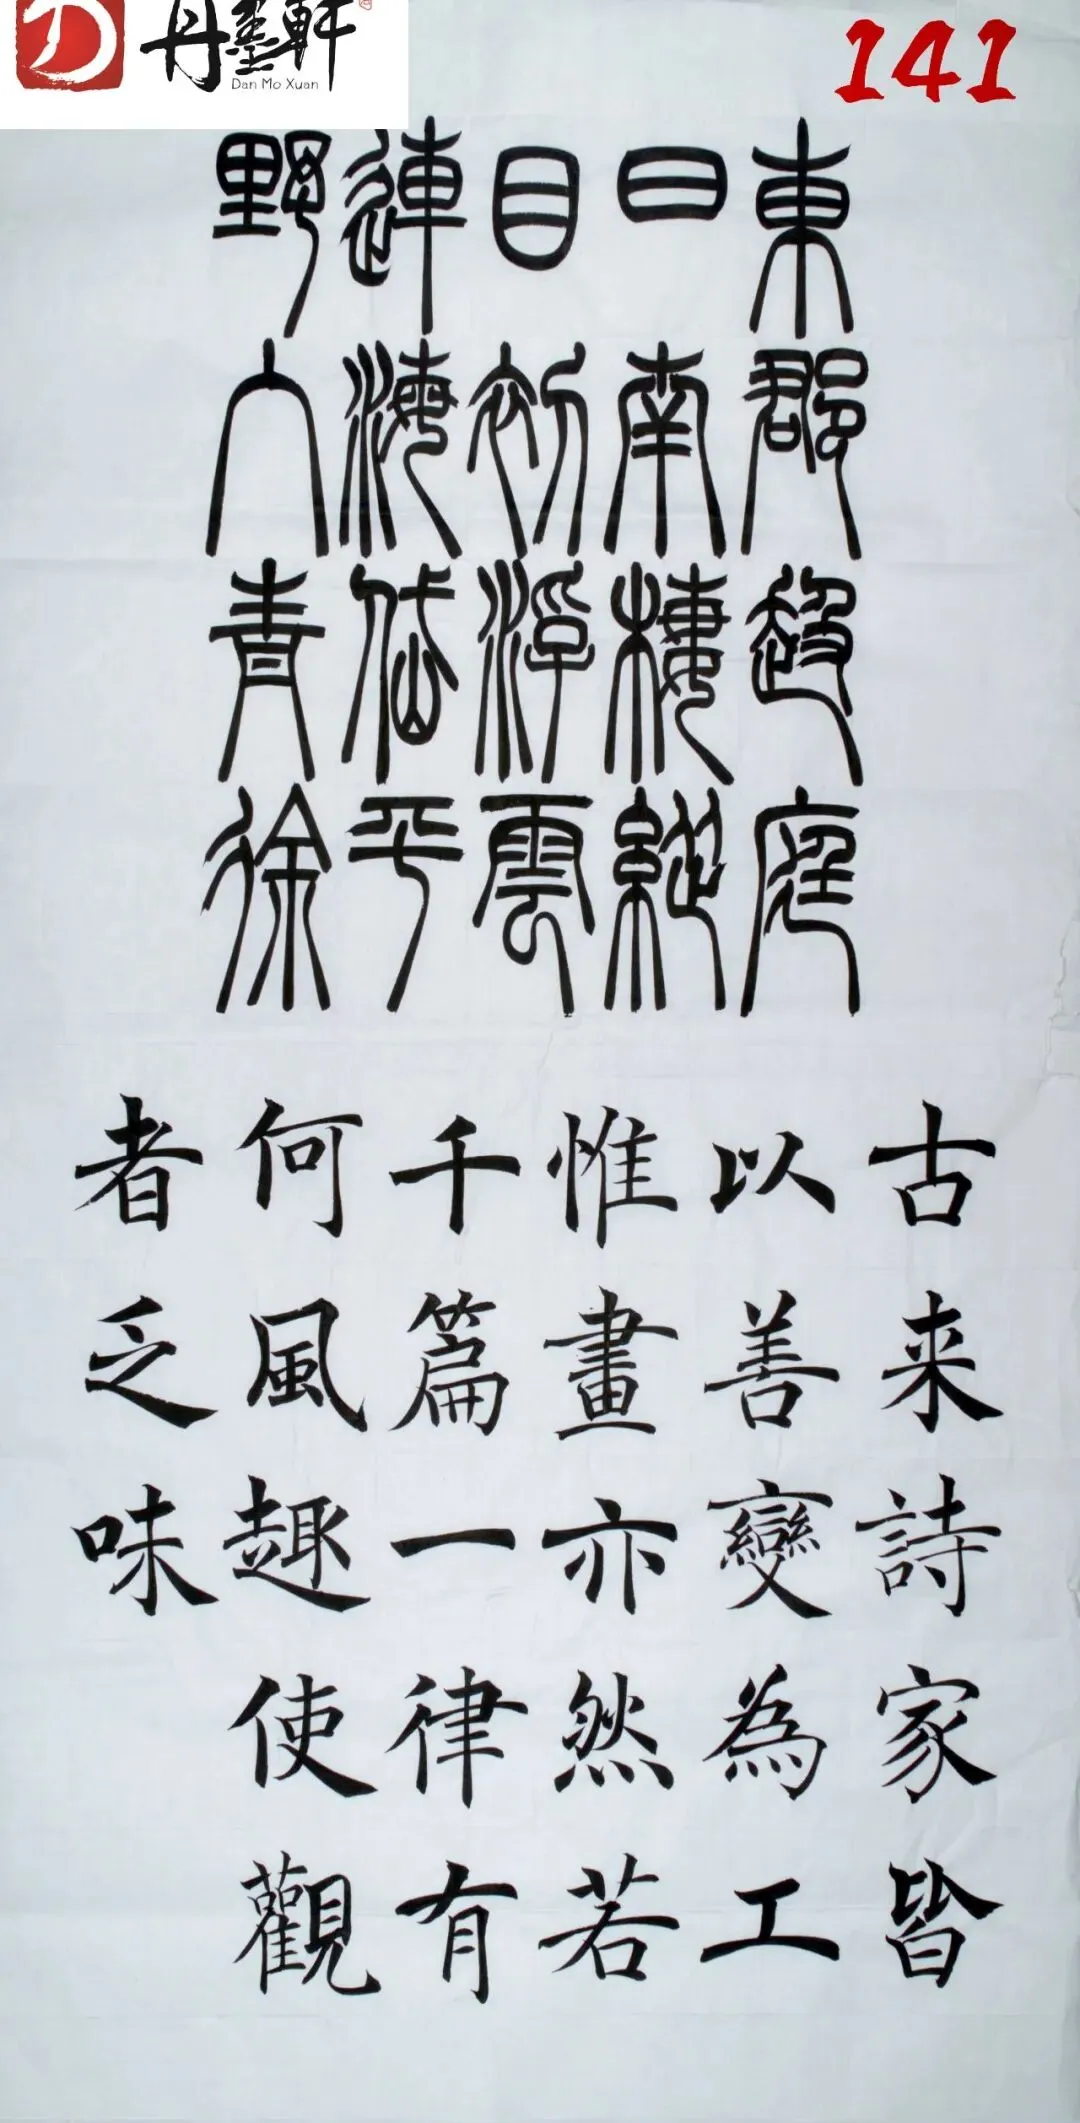 丹墨軒
Dan Mo Xuan
141
東郡趨庭
日南樓縱
目初浮雲
連海岱平
野入青徐
古来詩家皆
以善變為工
惟畫亦然若
千篇一律有
何風趣使觀
者乏味